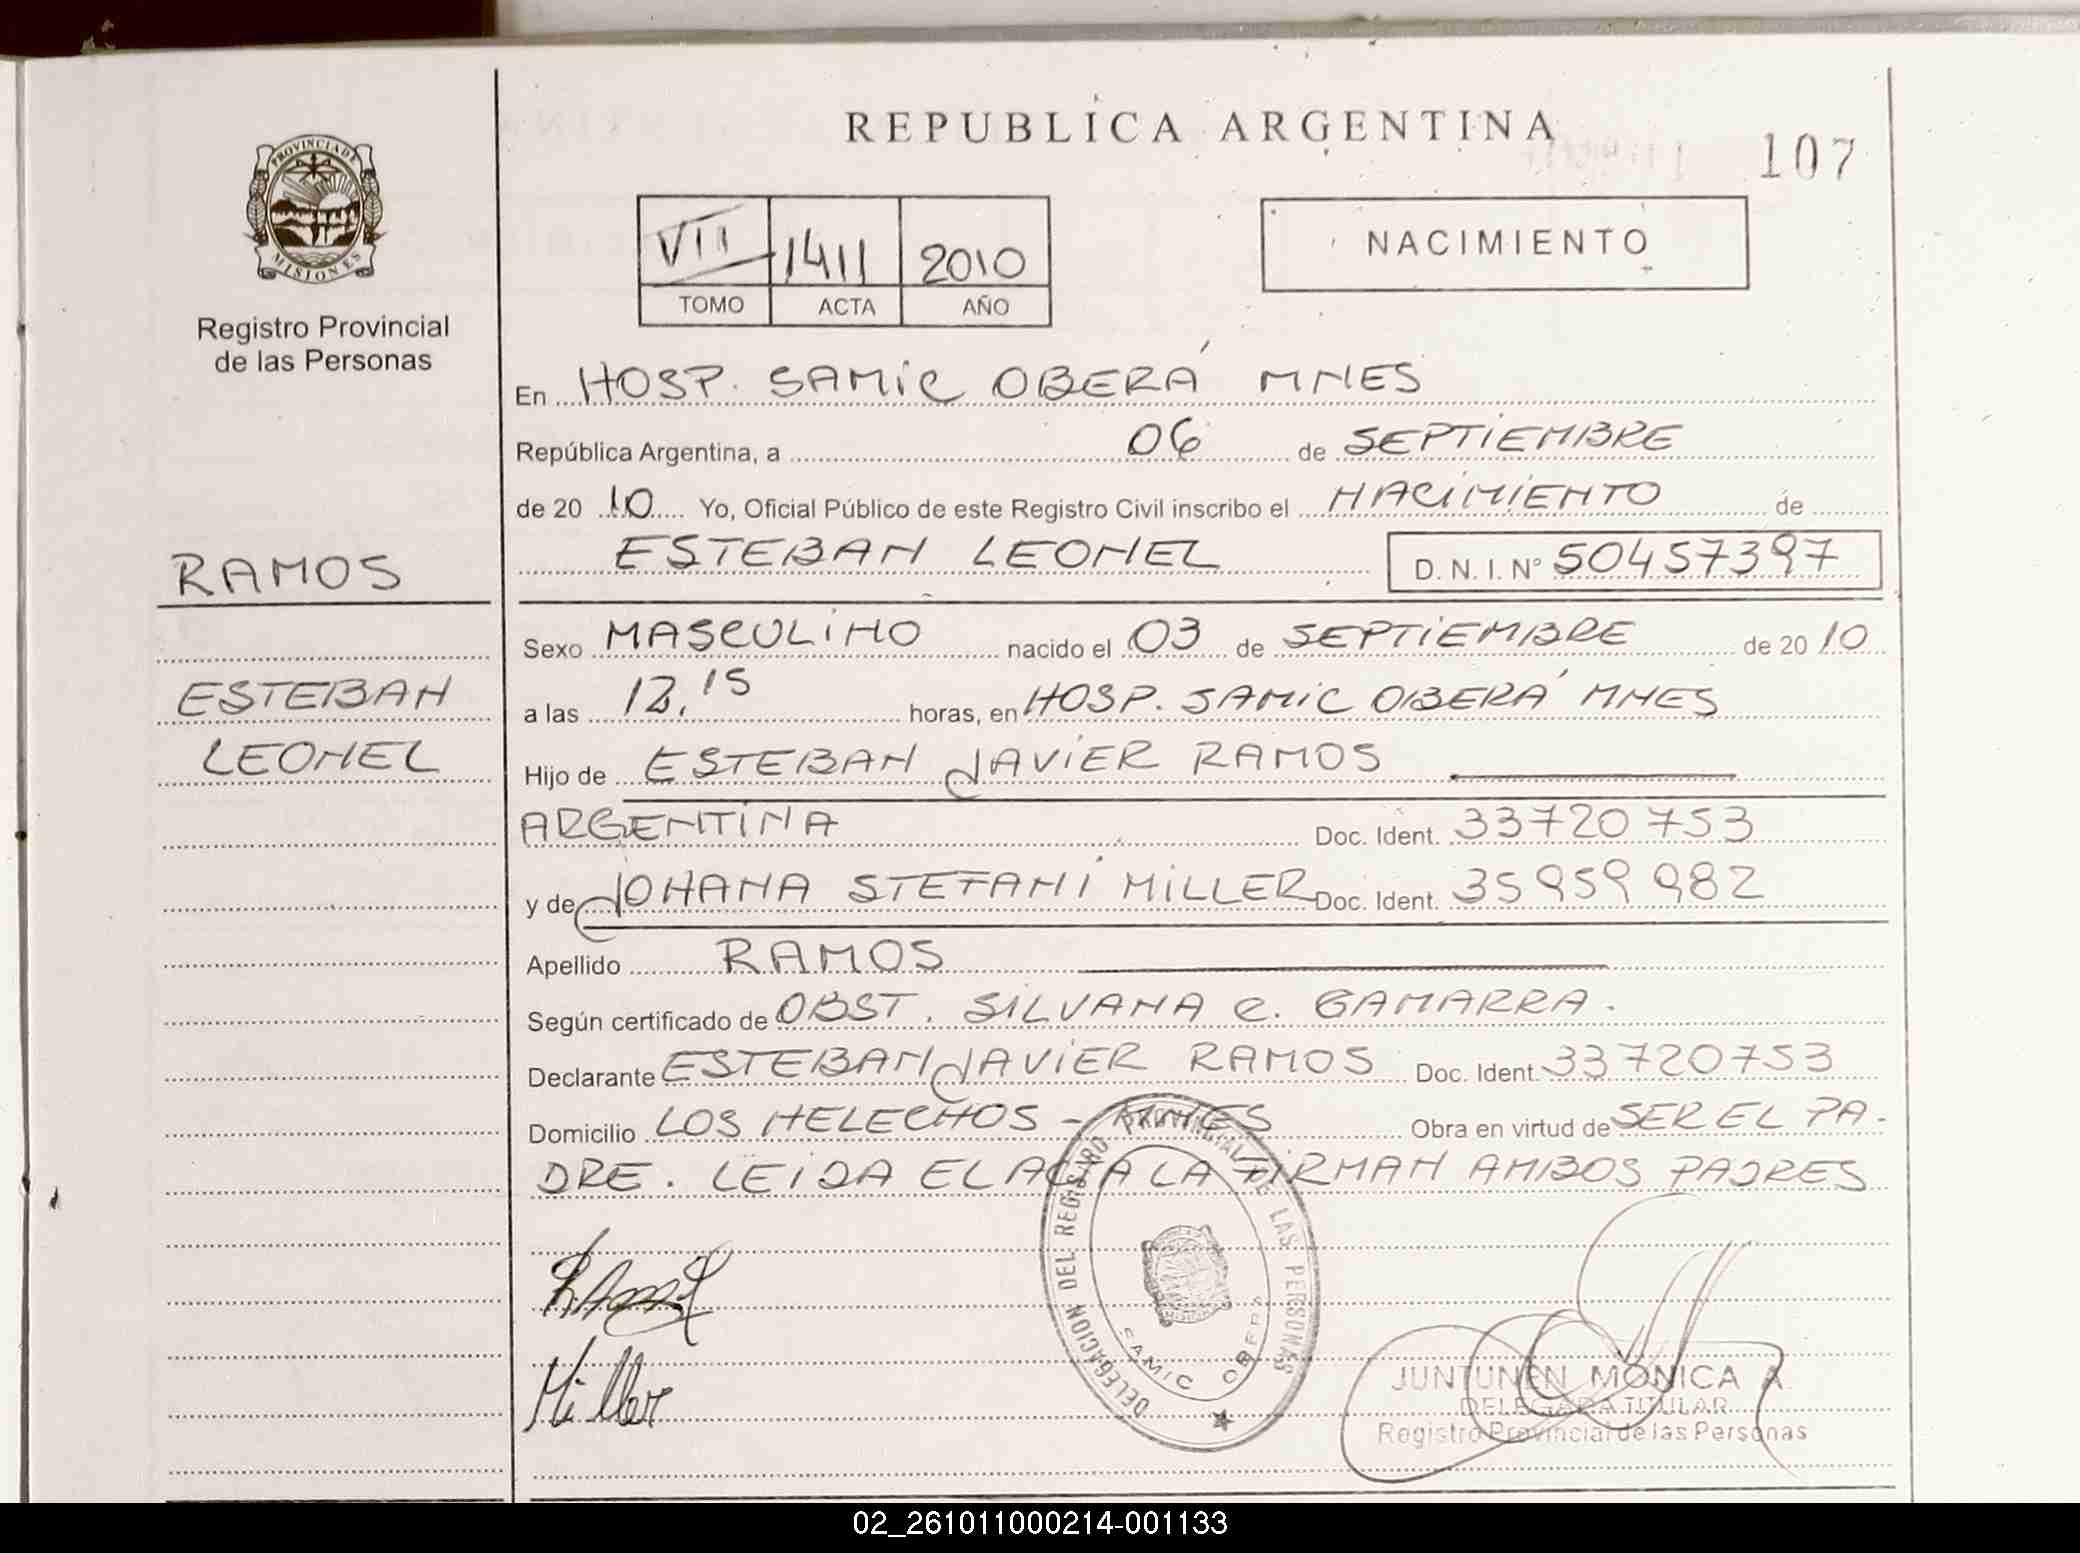 REPUBLICA ARGENTINA
107
PROVINCIA DE
MISIONES
Registro Provincial
de las Personas
VII 1411 2010
TOMO ACTA AÑO
NACIMIENTO
En HOSP. SAMIC OBERÁ MNES
República Argentina, a 06 de SEPTIEMBRE
de 20 10 Yo, Oficial Público de este Registro Civil inscribo el NACIMIENTO de
RAMOS
ESTEBAN LEONEL D. N. I. N° 50457397
Sexo MASCULINO nacido el 03 de SEPTIEMBRE de 20 10
ESTEBAN
a las 12,15 horas, en HOSP. SAMIC OBERÁ MNES
LEONEL
Hijo de ESTEBAN JAVIER RAMOS
ARGENTINA Doc. Ident. 33720753
y de JOHANA STEFANÍ MILLER Doc. Ident. 35959982
Apellido RAMOS
Según certificado de OBST. SILVANA C. GAMARRA.
Declarante ESTEBAN JAVIER RAMOS Doc. Ident. 33720753
Domicilio LOS HELECHOS - MNES Obra en virtud de SER EL PA-
DRE. LEIDA EL ACTA LA FIRMAN AMBOS PADRES
DELEGACION DEL REGISTRO PROVINCIAL DE LAS PERSONAS
SAMIC OBERA
Miller
JUNTUNEN MÓNICA A.
DELEGADA TITULAR
Registro Provincial de las Personas
02_261011000214-001133